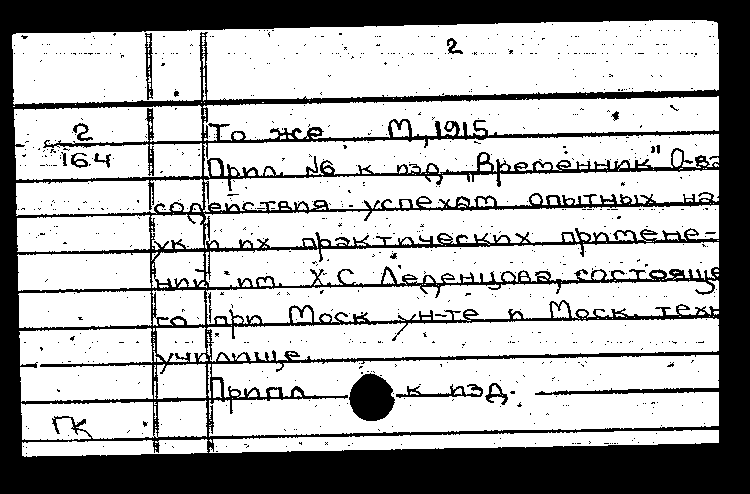 2
2
164
То же М., 1915.
Прил. №6 к изд. „Временник" О-ва
содействия успехам опытных на-
ук и их практических примене-
ний им. Х.С. Леденцова, состояще
го при Моск ун-те и Моск. техн
училище.
Припл к изд.
ГК